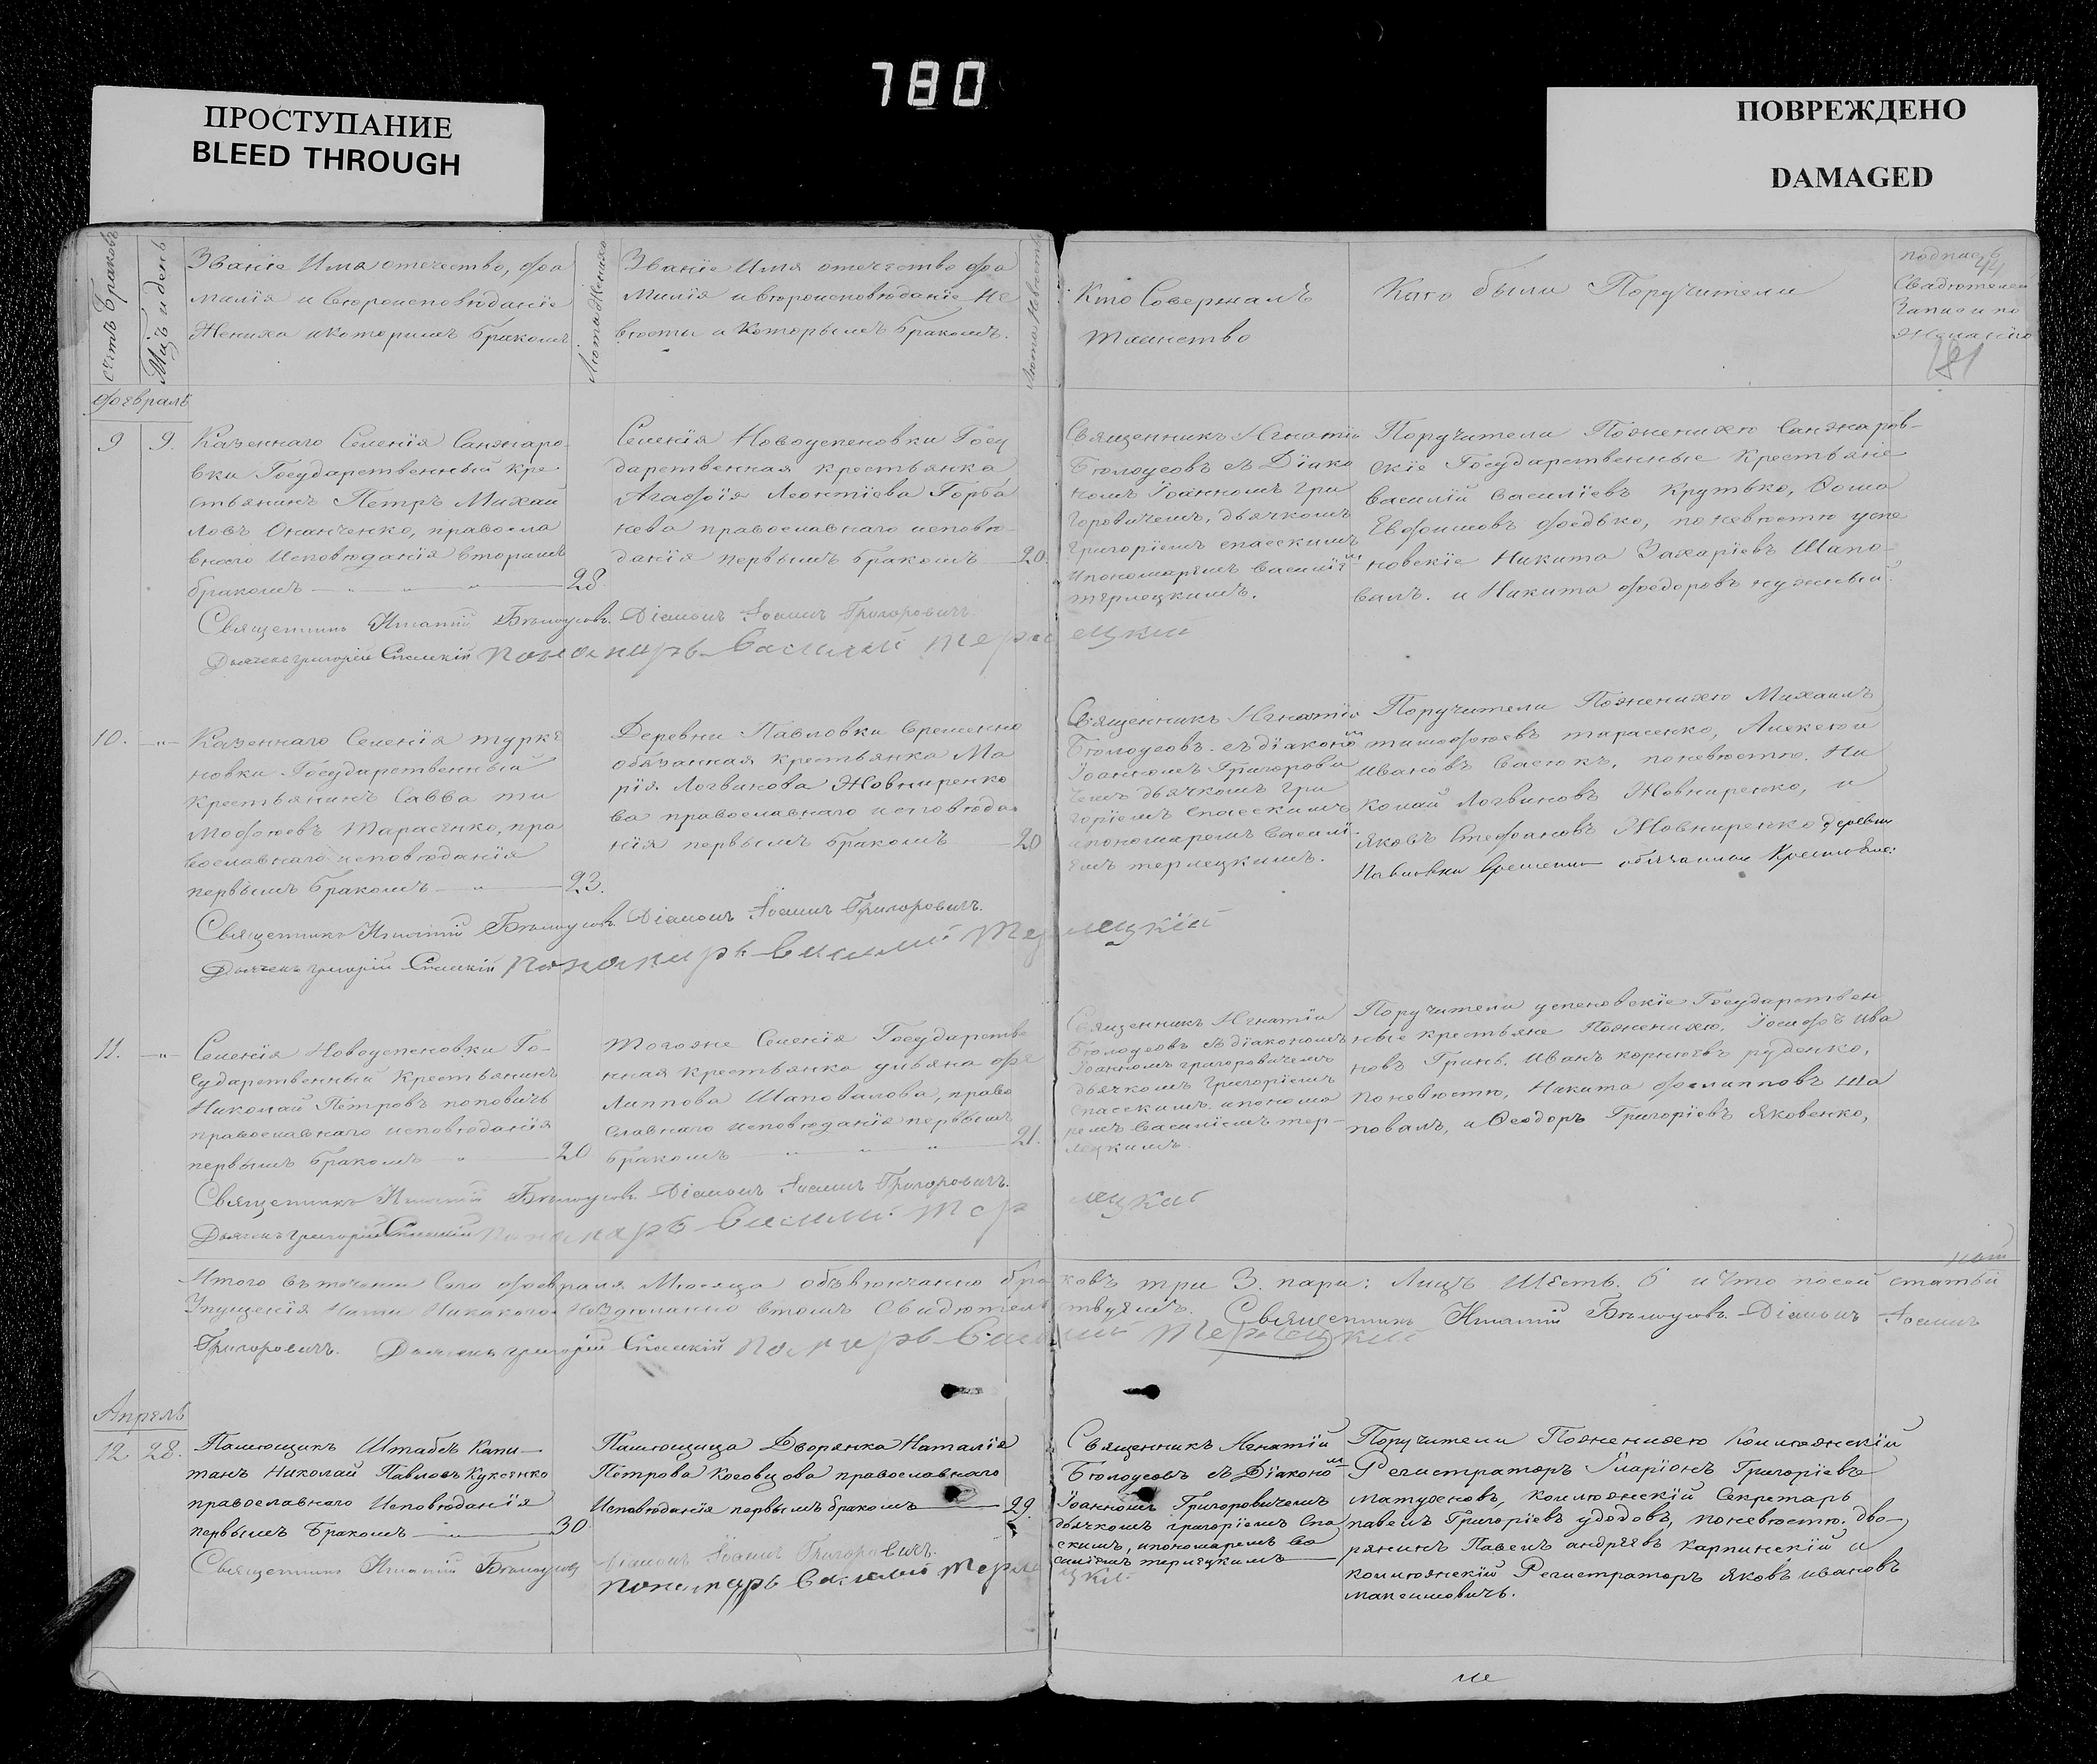 780
ПРОСТУПАНИЕ
BLEED THROUGH
ПОВРЕЖДЕНО
DAMAGED
счетъ Браковъ
Мѣц и день
Званіе Имя отечество, фа
милія и вѣроисповѣданіе
Жениха и которимъ бракомъ
Лѣта Жениха
Званіе Имя отечество фа
милія и вѣроисповѣданіе Не
вѣсты и Которымъ бракомъ.
Лѣта Невѣсты
Кто Совершалъ
таинство
Кто были Поручители
44
Свидѣтелей
Записи по
181
Февраль
9
9.
Казеннаго Селенія Санжаро-
вки Государственный кре-
стьянинъ Петръ Михай
ловъ Онанченко, правосла
внаго Исповѣданія вторимъ
бракомъ 28
Селенія Новоуспеновки Госу
дарственная крестьянка
Агафія Леонтіева Горба
нева православнаго исповѣ-
данія первымъ бракомъ 20.
Священникъ Игнатій
Бѣлоусовъ съ Діако
номъ Іоанномъ Гри
горовичемъ, дьячкомъ
Григоріемъ спасскимъ
и пономаремъ Василіем
терлецкимъ.
Поручители По женихѣ Санжаров-
скіе Государственные Крестьяне
Василій Васильевъ Крутько, Фома
Евфимовъ Федько, по невѣстѣ успе
новскіе Никита Захаріевъ Шапо-
валъ. и Никита Федоровъ нужный.
Священникъ Игнатій Бѣлоусовъ. Діаконъ Іоаннъ Григоровичъ.
Дьячекъ Григорій Спасскій Пономарь Василий Терлецкий
10.
Казеннаго Селенія турке
новки Государственный
Крестьянинъ Савва ти
мофѣевъ Тарасенко, пра
вославнаго исповѣданія
первымъ бракомъ 23.
Деревни Павловки временно
обязанная крестьянка Ма
рія Логвинова Жовниренко
ва православнаго исповѣда
нія первымъ бракомъ 20
Священникъ Игнатій
Бѣлоусовъ. съ діаконом
Іоанномъ Григорови
чемъ дьячкомъ Гри
горіемъ Спасскимъ
и пономаремъ Василі-
емъ терлецкимъ.
Поручители По женихѣ Михаилъ
тимофѣевъ тарасенко, Алексѣй
Ивановъ Васюкъ, по невѣстѣ. Ни
колай Логвиновъ Жовниренко, и
Яковъ Стефановъ Жовниренко деревни
Павловки временно обязанные Крестьяне.
Священникъ Игнатій Бѣлоусовъ. Діаконъ Іоаннъ Григоровичъ.
Дьячекъ Григорій Спасскій Пономарь Василий Терлецкій
11.
Селенія Новоуспеновки Го-
сударственный Крестьянинъ
Николай Петровъ поповичъ
православнаго исповѣданія
первымъ бракомъ 20
Того же Селенія Государстве
нная крестьянка ульяна Фи
липпова Шаповалова, право
славнаго исповѣданія первымъ
бракомъ 21.
Священникъ Игнатій
Бѣлоусовъ съ діакономъ
Іоанномъ григоровичемъ
дьячкомъ Григоріемъ
спасскимъ. и понома
ремъ Василіемъ тер-
лецкимъ.
Поручители успеновскіе Государствен
ные крестьяне По женихѣ, Іосифъ Ива
новъ Гринь. Иванъ корнѣевъ руденко,
по невѣстѣ, Никита Филипповъ Ша
повалъ, и Феодоръ Григоріевъ Яковенко,
Священникъ Игнатій Бѣлоусовъ. Діаконъ Іоаннъ Григоровичъ.
Дьячекъ Григорій Спасскій Пономарь Василий Терлецкий
Итого въ течении Сего февраля Мѣсяца объвѣнчанно браковъ три 3. пари: Лицъ Шесть. 6 и Что по сей статьи
Упущенія Нами Никакого Не Здѣланно втомъ Свидѣтельствуемъ. Священникъ Игнатій Бѣлоусовъ. Діаконъ Іоаннъ
Григоровичъ. Дьячекъ Григорій Спасскій Пономарь Василий Терлецкий
Апрель
12
28.
Помѣщикъ Штабсъ Капи-
танъ Николай Павловъ Куксенко
православнаго Исповѣданія
первымъ Бракомъ 30
Помѣщица Дворянка Наталія
Петрова Косовцова православнаго
Исповѣданія первымъ бракомъ 29.
Священникъ Игнатій
Бѣлоусовъ съ Діаконом
Іоанномъ Григоровичемъ
дьячкомъ григоріемъ Спа
скимъ, и пономаремъ Ва
силіемъ терлецкимъ
Поручители По женихѣ Коллежскій
Регистраторъ Іларіонъ Григоріевъ
матухновъ, коллежскій Секретарь
павелъ Григоріевъ удодовъ, по невѣстѣ. дво-
рянинъ Павелъ андреевъ Карпинскій и
коллежскій Регистраторъ Яковъ ивановъ
максимовичъ.
Священникъ Игнатій Бѣлоусовъ Діаконъ Іоаннъ Григоровичъ.
Пономарь Василий Терлецкий